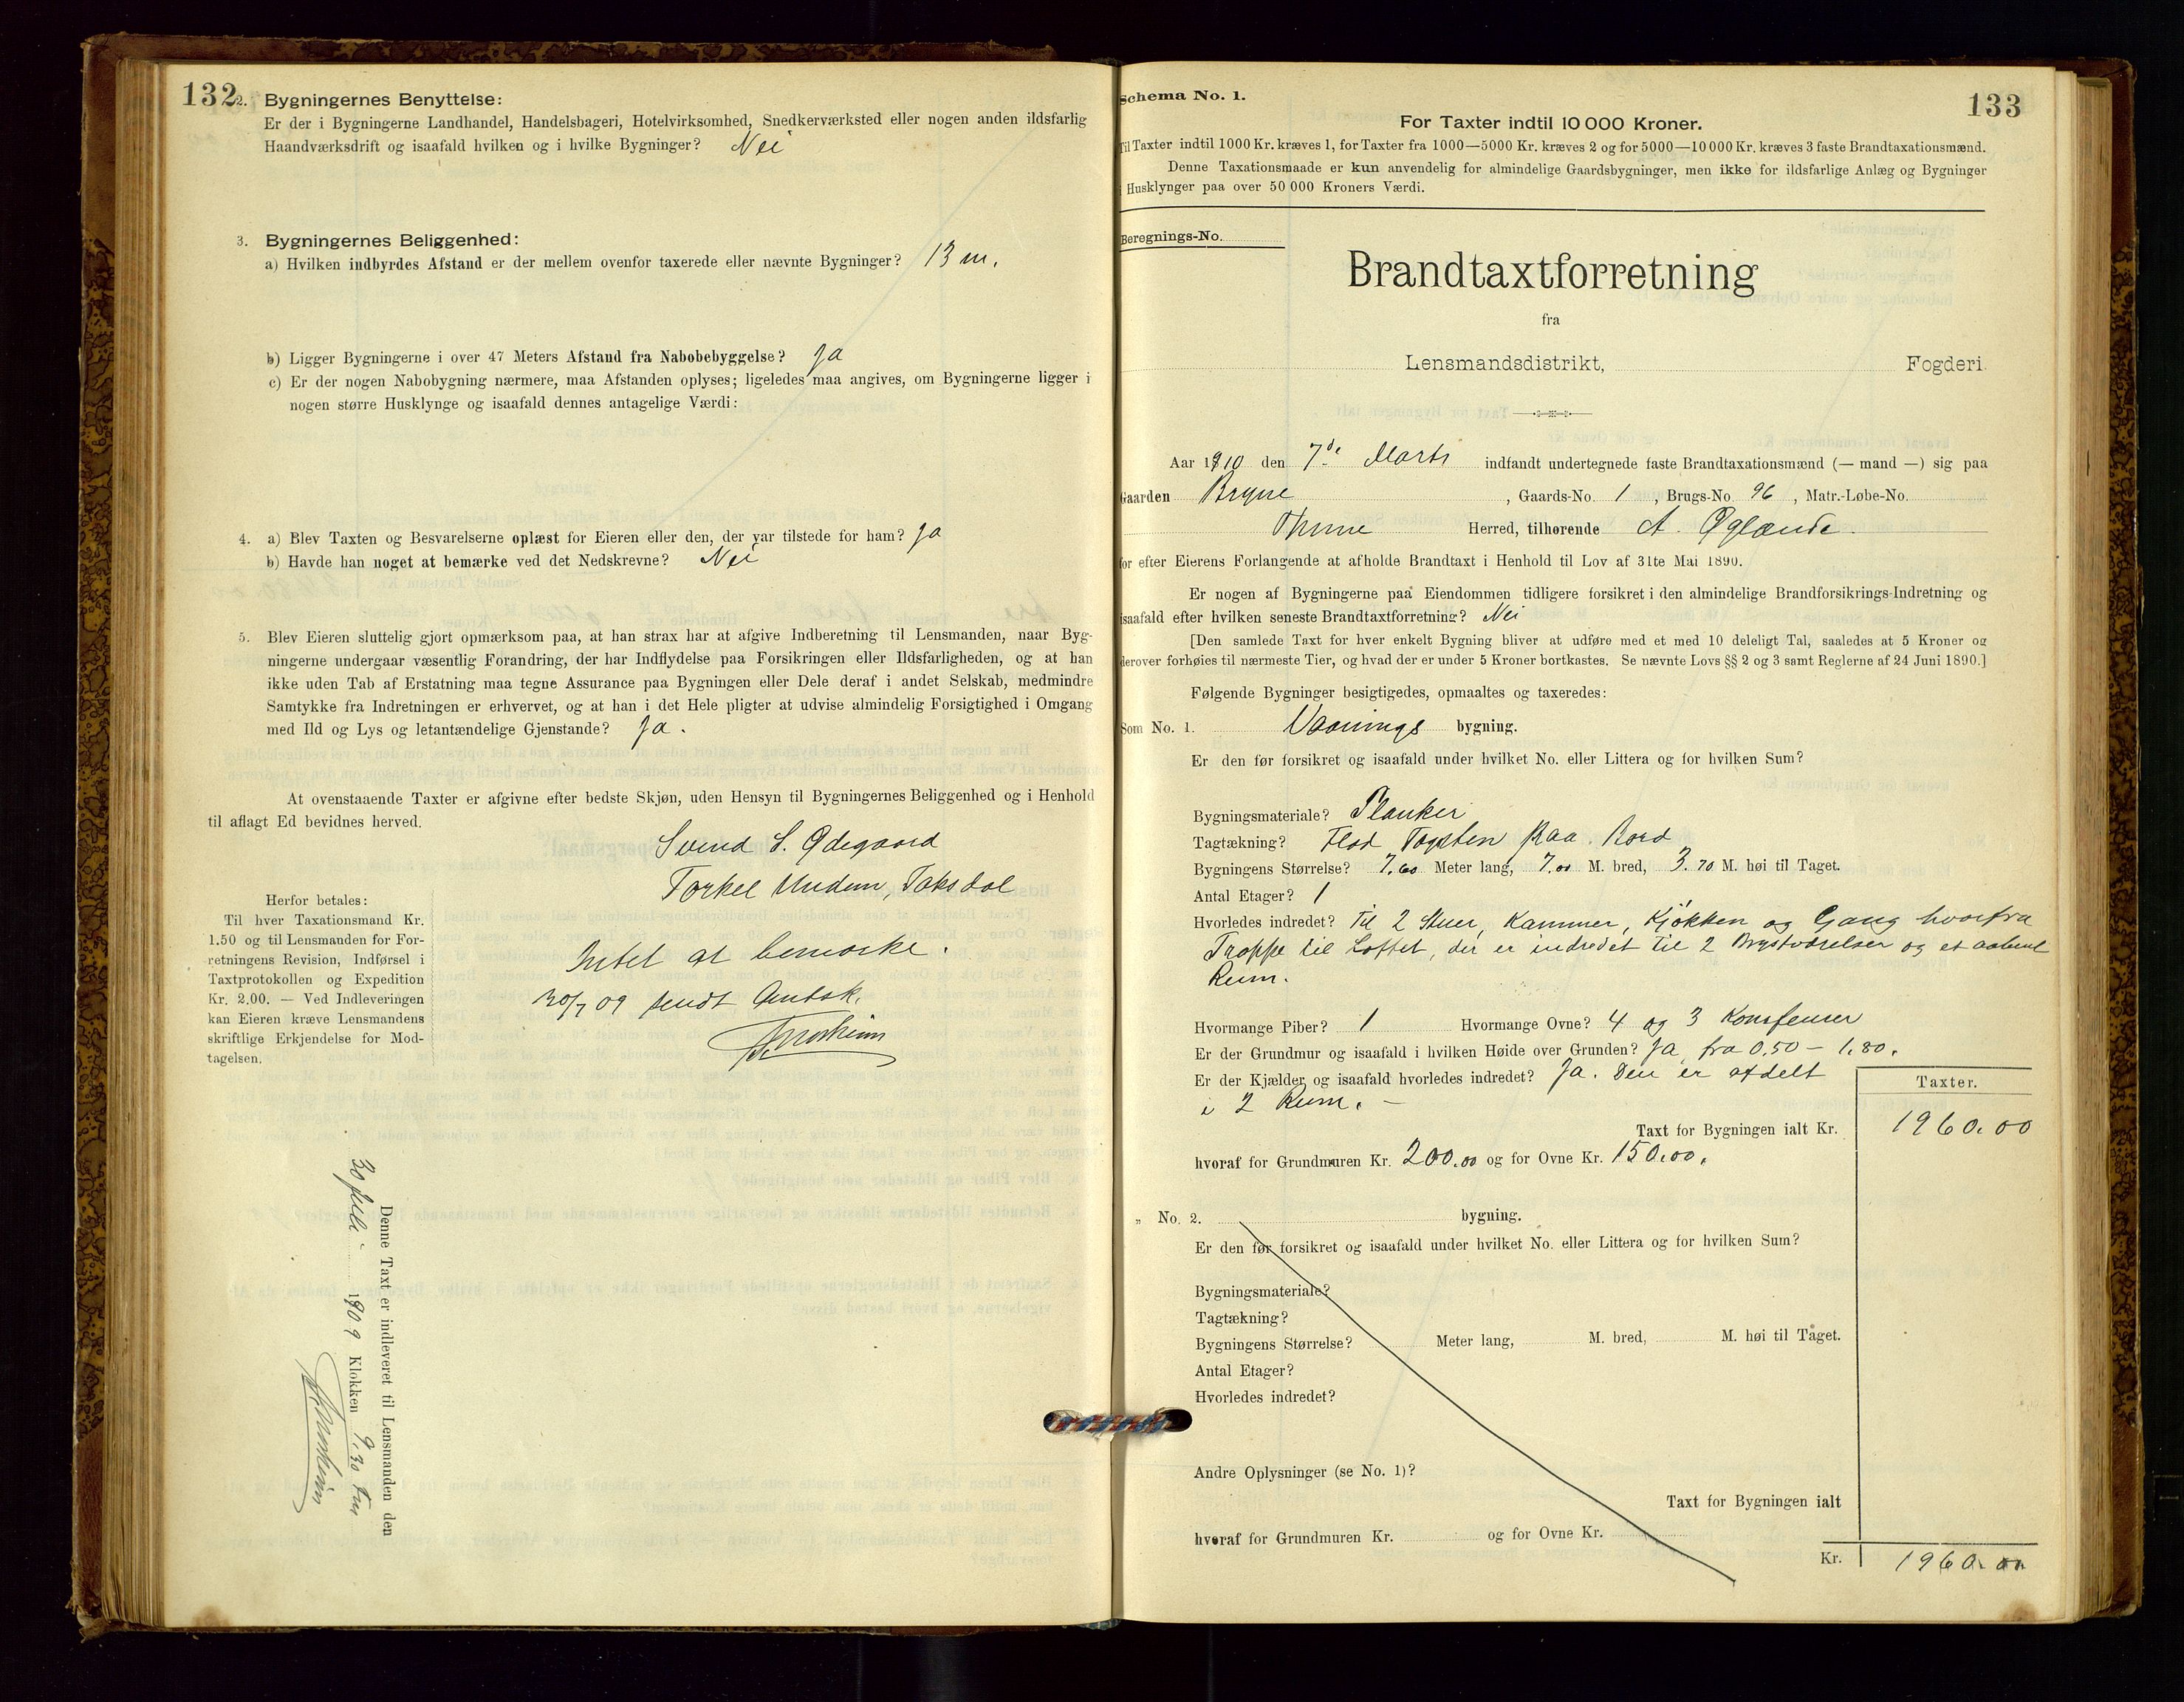 132
2. Bygningernes Benyttelse:
Er der i Bygningerne Landhandel, Handelsbageri, Hotelvirksomhed, Snedkerværksted eller nogen anden ildsfarlig
Haandværksdrift og isaafald hvilken og i hvilke Bygninger? Nei
3. Bygningernes Beliggenhed:
a) Hvilken indbyrdes Afstand er der mellem ovenfor taxerede eller nævnte Bygninger? 13 m.
b) Ligger Bygningerne i over 47 Meters Afstand fra Nabobebyggelse? Ja
c) Er der nogen Nabobygning nærmere, maa Afstanden oplyses; ligeledes maa angives, om Bygningerne ligger i
nogen større Husklynge og isaafald dennes antagelige Værdi:
4. a) Blev Taxten og Besvarelserne oplæst for Eieren eller den, der var tilstede for ham? Ja
b) Havde han noget at bemærke ved det Nedskrevne? Nei
5. Blev Eieren sluttelig gjort opmærksom paa, at han strax har at afgive Indberetning til Lensmanden, naar Byg-
ningerne undergaar væsentlig Forandring, der har Indflydelse paa Forsikringen eller Ildsfarligheden, og at han
ikke uden Tab af Erstatning maa tegne Assurance paa Bygningen eller Dele deraf i andet Selskab, medmindre
Samtykke fra Indretningen er erhvervet, og at han i det Hele pligter at udvise almindelig Forsigtighed i Omgang
med Ild og Lys og letantændelige Gjenstande? Ja.
At ovenstaaende Taxter er afgivne efter bedste Skjøn, uden Hensyn til Bygningernes Beliggenhed og i Henhold
til aflagt Ed bevidnes herved.
Svend S. Ødegaard
Torkel Undem, Taksdal
Herfor betales:
Til hver Taxationsmand Kr.
1.50 og til Lensmanden for For-
retningens Revision, Indførsel i
Taxtprotokollen og Expedition
Kr. 2.00. — Ved Indleveringen
kan Eieren kræve Lensmandens
skriftlige Erkjendelse for Mod-
tagelsen.
Intet at bemærke.
30/7 09 sendt Amtsk.
Denne Taxt er indleveret til Lensmanden den
30 juli 1909 Klokken 9,30 fm
133
Schema No. 1.
For Taxter indtil 10 000 Kroner.
Til Taxter indtil 1000 Kr. kræves 1, for Taxter fra 1000—5000 Kr. kræves 2 og for 5000—10 000 Kr. kræves 3 faste Brandtaxationsmænd.
Denne Taxationsmaade er kun anvendelig for almindelige Gaardsbygninger, men ikke for ildsfarlige Anlæg og Bygninger
i Husklynger paa over 50 000 Kroners Værdi.
Beregnings-No.
Brandtaxtforretning
fra
Lensmandsdistrikt, Fogderi.
Aar 1910 den 7de Marts indfandt undertegnede faste Brandtaxationsmænd (— mand —) sig paa
Gaarden Bryne, Gaards-No. 1, Brugs-No. 96, Matr.-Løbe-No.
Thime Herred, tilhørende A. Øglænde.
for efter Eierens Forlangende at afholde Brandtaxt i Henhold til Lov af 31te Mai 1890.
Er nogen af Bygningerne paa Eiendommen tidligere forsikret i den almindelige Brandforsikrings-Indretning og
isaafald efter hvilken seneste Brandtaxtforretning? Nei
[Den samlede Taxt for hver enkelt Bygning bliver at udføre med et med 10 deleligt Tal, saaledes at 5 Kroner og
derover forhøies til nærmeste Tier, og hvad der er under 5 Kroner bortkastes. Se nævnte Lovs §§ 2 og 3 samt Reglerne af 24 Juni 1890.]
Følgende Bygninger besigtigedes, opmaaltes og taxeredes:
Som No. 1. Vaanings bygning.
Er den før forsikret og isaafald under hvilket No. eller Littera og for hvilken Sum?
Bygningsmateriale? Planker
Tagtækning? Flad Tagsten paa Bord
Bygningens Størrelse? 7.60 Meter lang, 7.00 M. bred, 3.70 M. høi til Taget.
Antal Etager? 1
Hvorledes indredet? Til 2 Stuer, Kammer, Kjøkken og Gang hvorfra
Trappe til Loftet, der er indredet til 2 Kvistværelser og et aabent
Rum.
Hvormange Piber? 1 Hvormange Ovne? 4 og 3 Komfeurer
Er der Grundmur og isaafald i hvilken Høide over Grunden? Ja, fra 0.50 – 1.80.
Er der Kjælder og isaafald hvorledes indredet? Ja. Den er afdelt
i 2 Rum. –
Taxter.
Taxt for Bygningen ialt Kr. 1960.00
hvoraf for Grundmuren Kr. 200.00 og for Ovne Kr. 150.00.
„ No. 2. bygning.
Er den før forsikret og isaafald under hvilket No. eller Littera og for hvilken Sum?
Bygningsmateriale?
Tagtækning?
Bygningens Størrelse? Meter lang, M. bred, M. høi til Taget.
Antal Etager?
Hvorledes indredet?
Andre Oplysninger (se No. 1)?
Taxt for Bygningen ialt
hvoraf for Grundmuren Kr. og for Ovne Kr.
Kr. 1960.00.